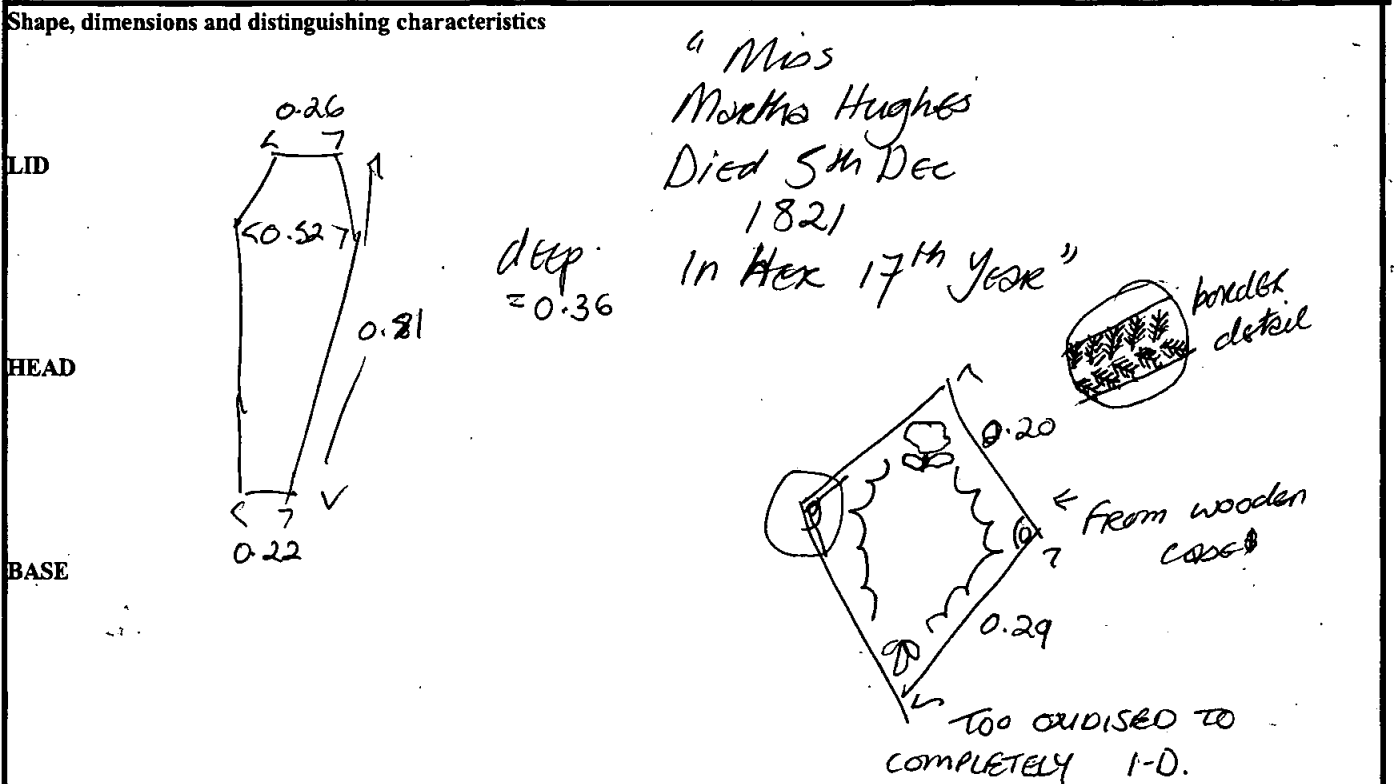 Shape, dimensions and distinguishing characteristics
LID
HEAD
BASE
0.26
<0.52>
0.81
0.22
deep
=0.36
"Miss
Martha Hughes
Died 5th Dec
1821
In Her 17th Year"
border
detail
0.20
← From wooden
case
0.29
Too oxidised to
completely I-D.